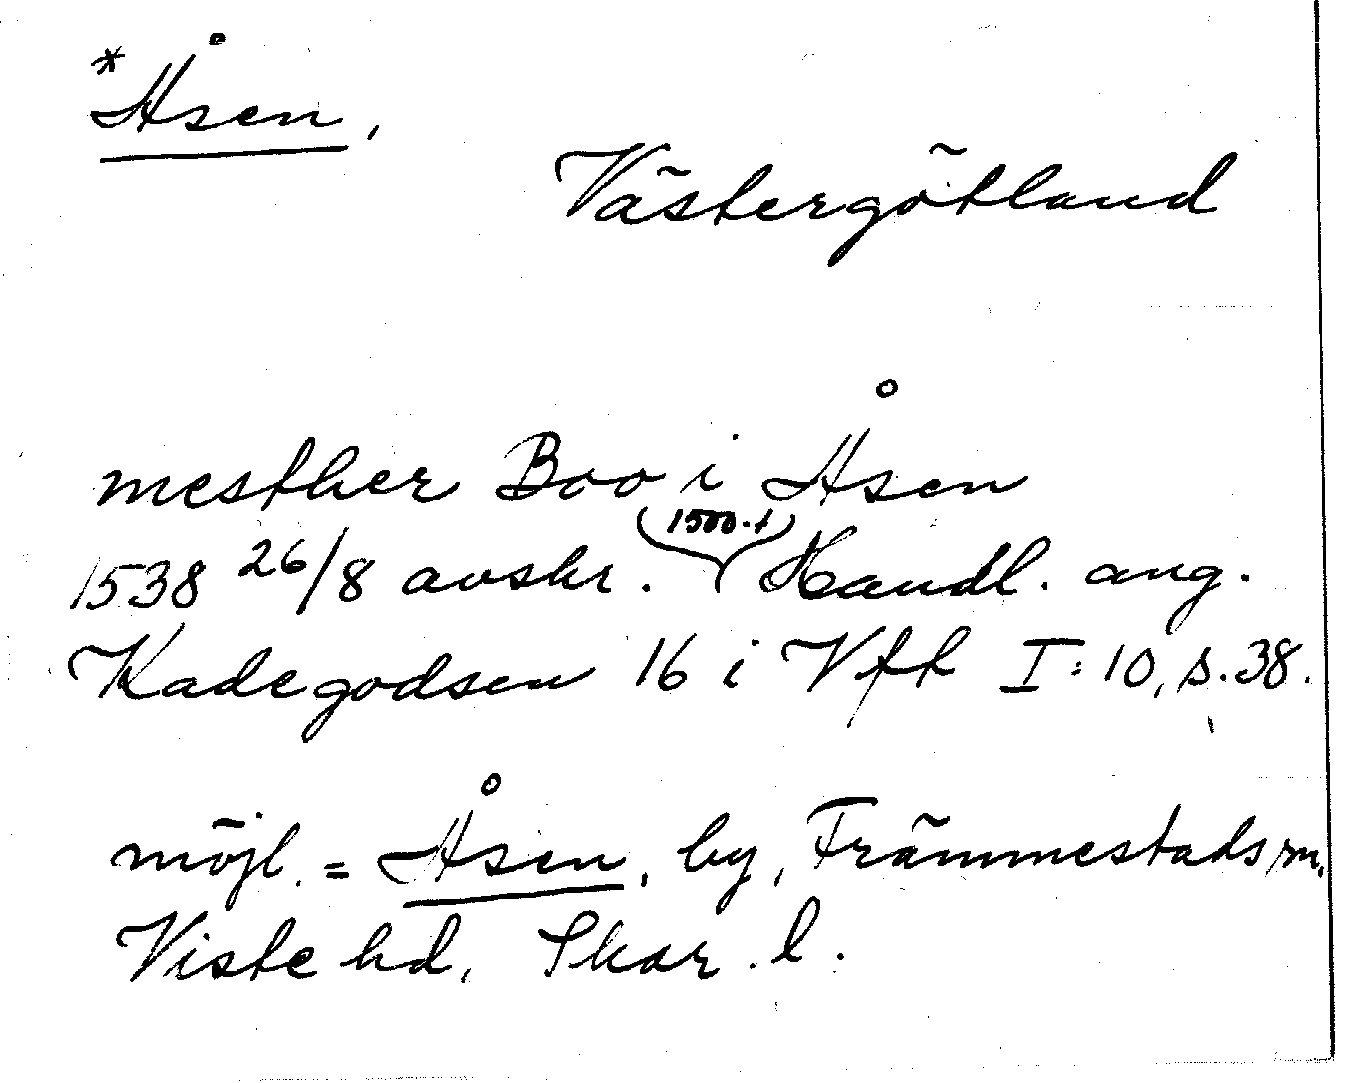 *Åsen,
Västergötland
mesther Boo i Åsen
1538 26/8 avskr. (1500-t) Handl. ang.
Kadegodsen 16 i Vfh I:10, s. 38.
möjl. = Åsen, by, Främmestads sn.
Viste hd, Skar. l.